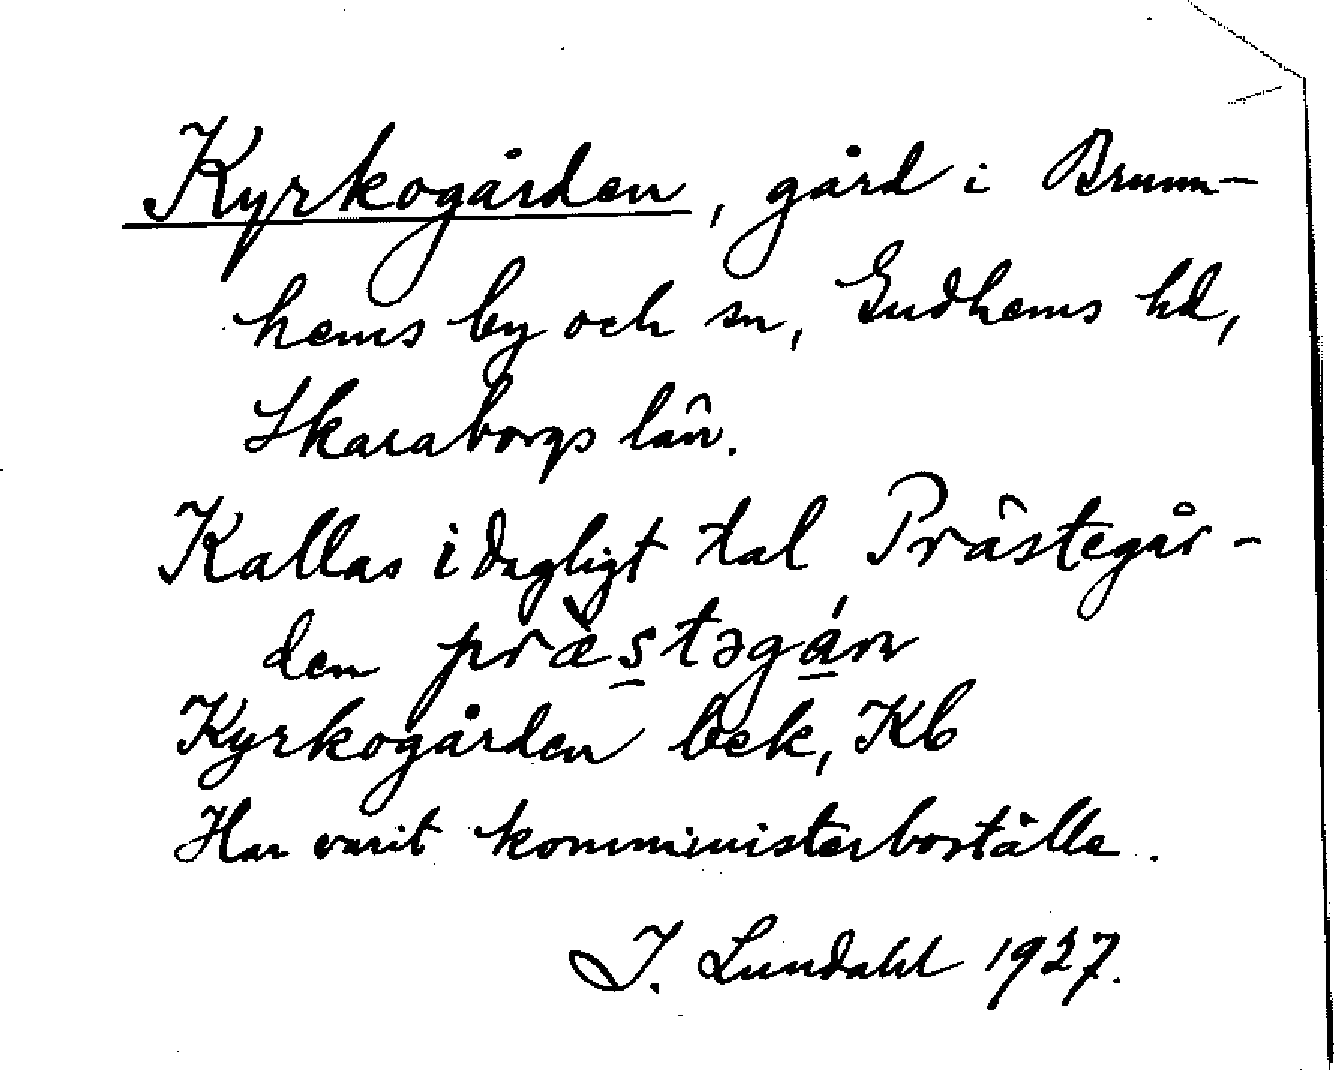 Kyrkogården, gård i Brunn-
hems by och sn, Gudhems hd,
Skaraborgs län.
Kallas i dagligt tal Prästegår-
den præ̀s̠təgá̠n
Kyrkogården bek, Kb
Har varit komministerboställe.
I. Lundahl 1927.